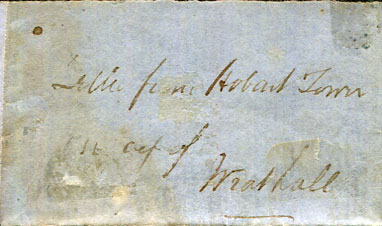 Letter from Hobart Town
of
Wrathall